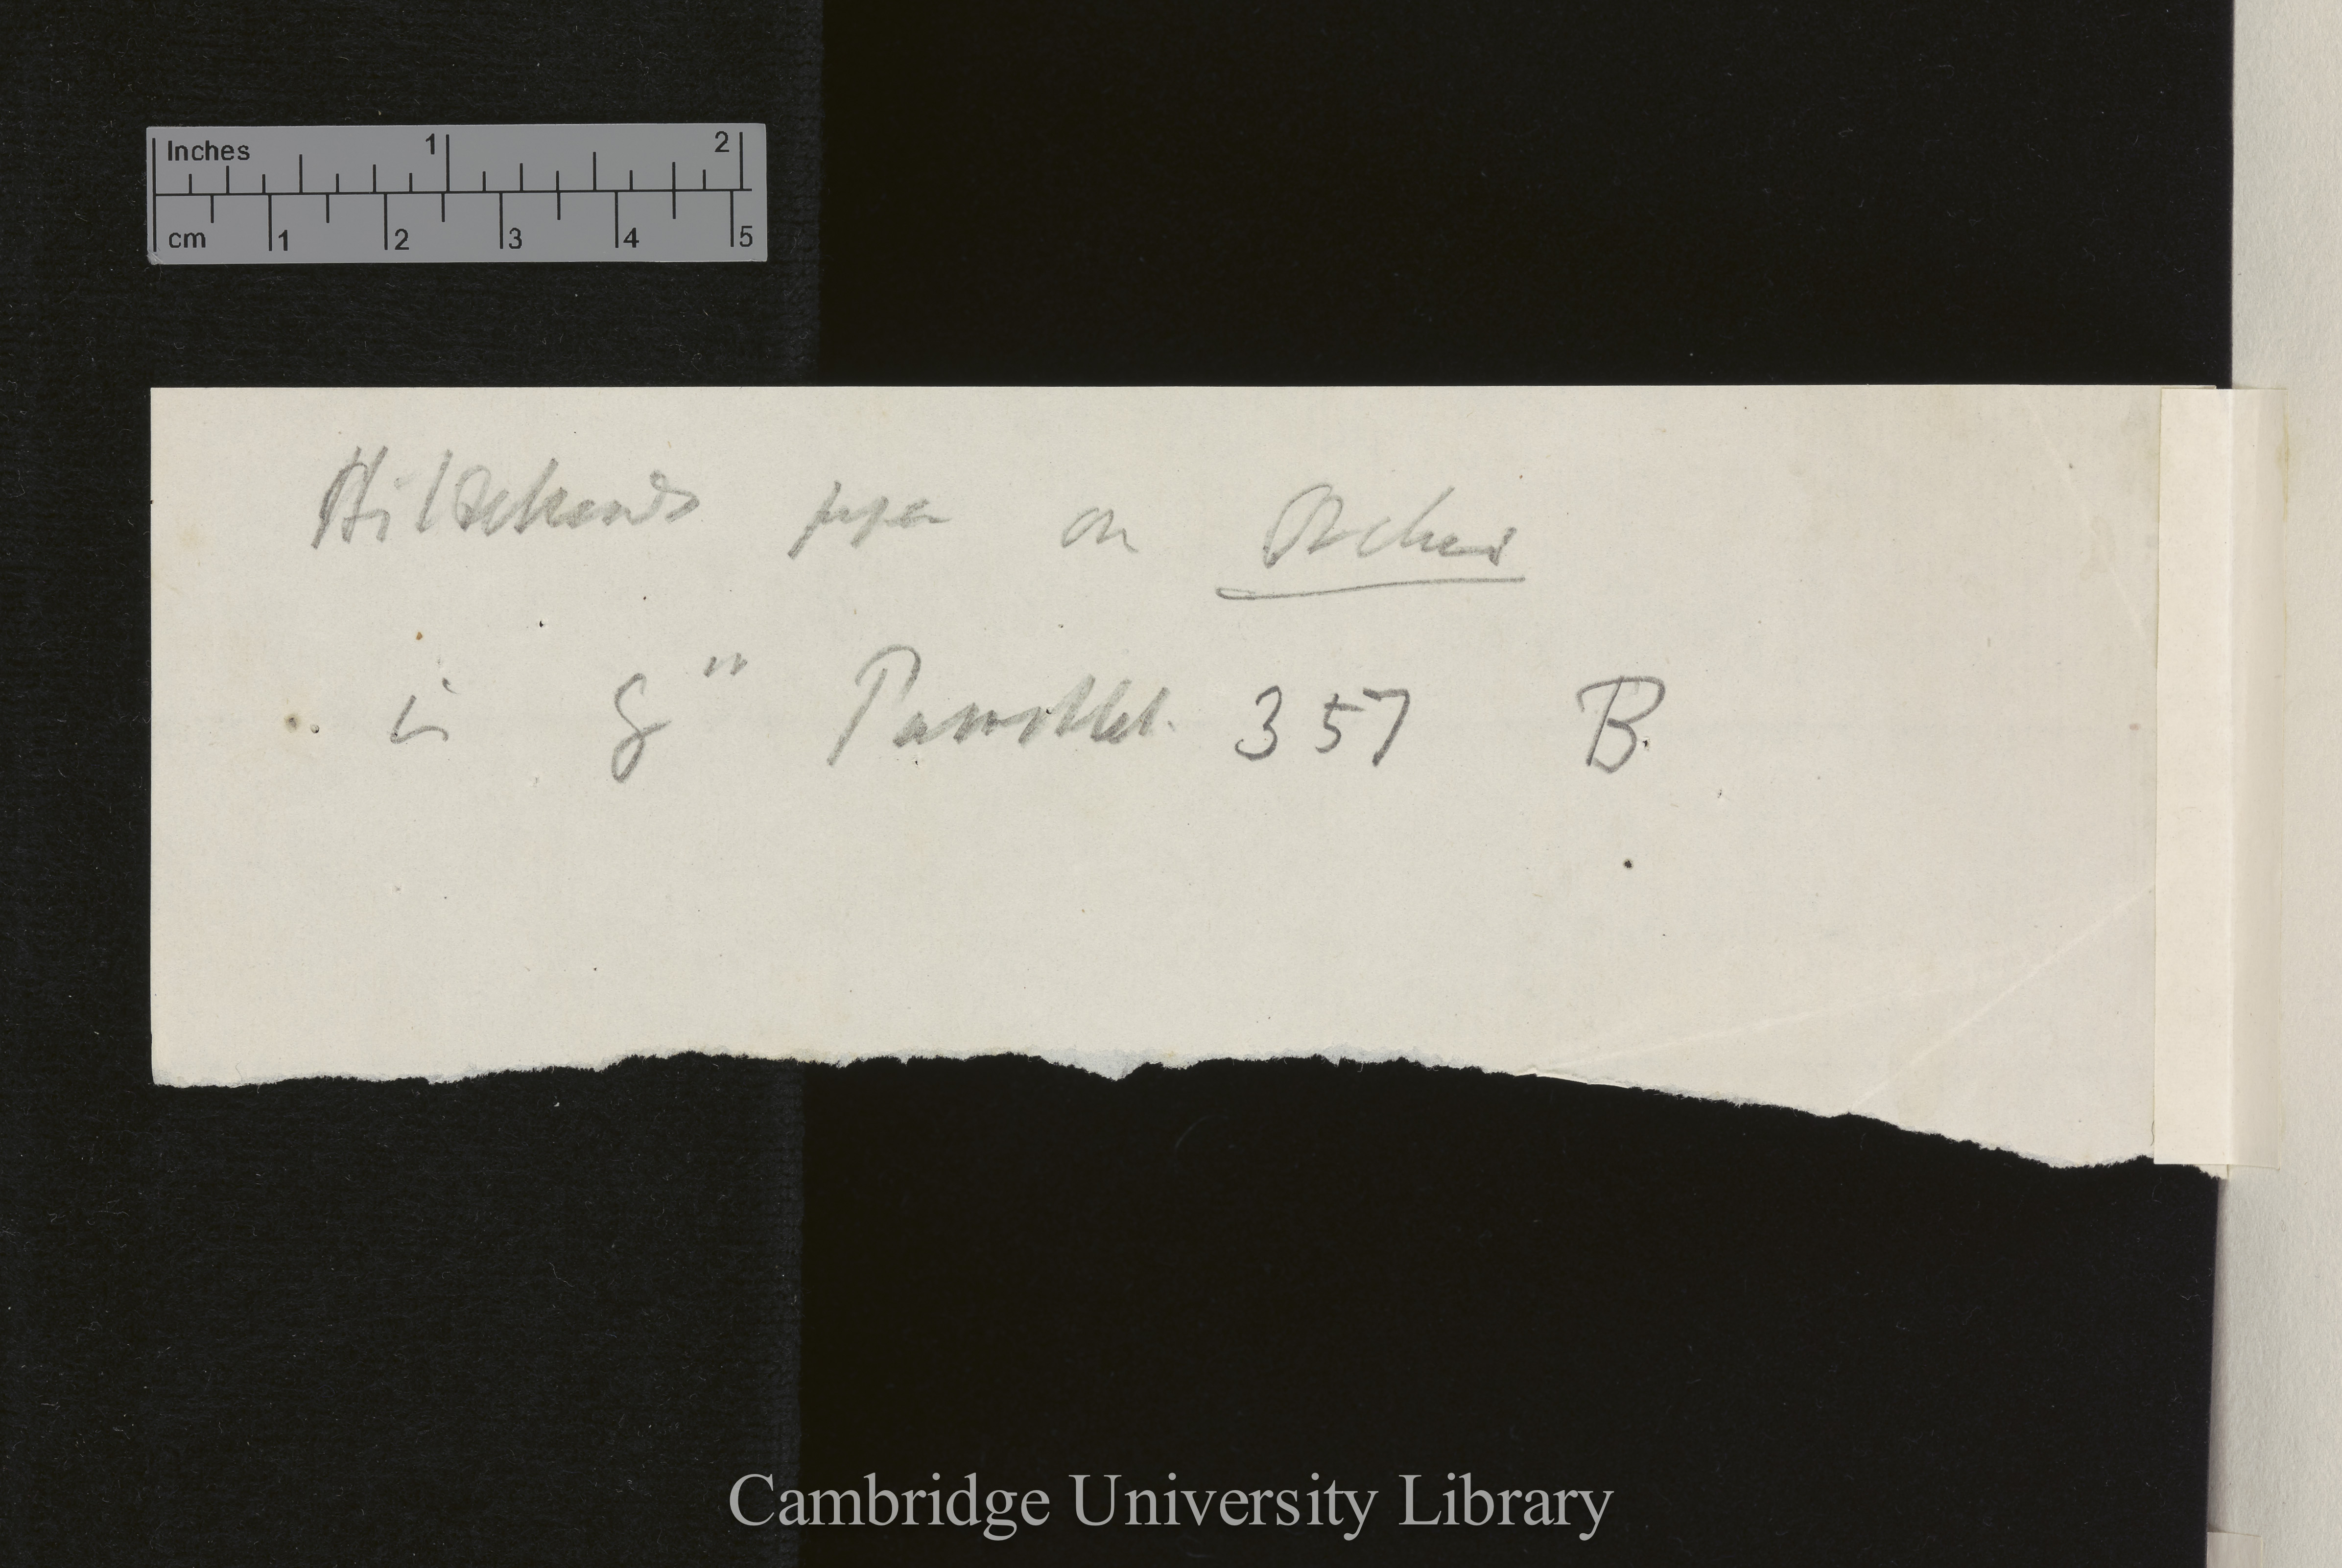 Inches 1 2
cm 1 2 3 4 5
Hildebrand's paper on Orchis
in 8'' Pamphlet 357 B.
Cambridge University Library